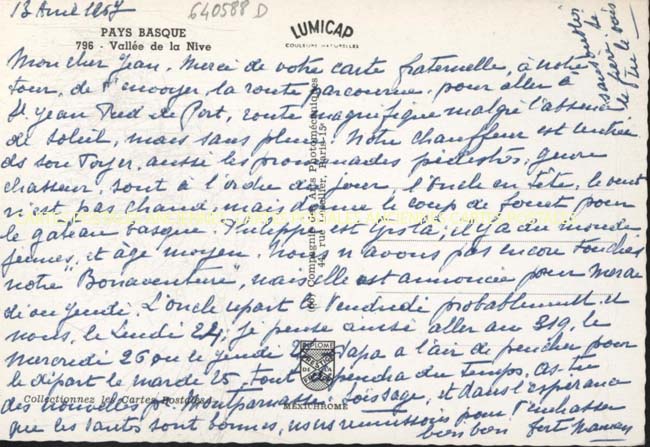 13 Avril 1957
640588 D
PAYS BASQUE
796 - Vallée de la Nive
LUMICAP
COULEURS NATURELLES
Mon cher Jean. Merci de votre carte fraternelle, à notre
tour, de t'envoyer, la route parcourue, pour aller à
St Jean Pied de Port, route magnifique malgré l'absence
de soleil, mais sans pluie. Notre chauffeur est rentré
ds son foyer, aussi les promenades pédestres, genre
chasseur, sont à l'ordre du jour, l'Oncle en tête, le vent
n'est pas chaud, mais donne le coup de fouet pour
le gateau basque. Philippe est ; il y a du monde
jeunes, et âge moyen. Nous n'avons pas encore touché
notre "Bonaventure", mais elle est annoncée pour mercre
di ou jeudi. L'oncle repart le Vendredi probablement et
nous, le Lundi 24, je pense aussi aller au 319, le
Mercredi 26 ou le jeudi Papa a l'air de pencher pour
le départ le mardi 25, tout dépendra du temps. As-tu
des nouvelles pr Montparnasse, Soissage, et dans l'espérance
que les santés sont bonnes, pour t'embrasser
bien bon fort Maman
sans
le
Tu le vois
Compagnie des Arts Photomécaniques
44, rue Letellier, Paris-15e
DIPLOME
DE LA
Collectionnez les Cartes Postales
MEXICHROME